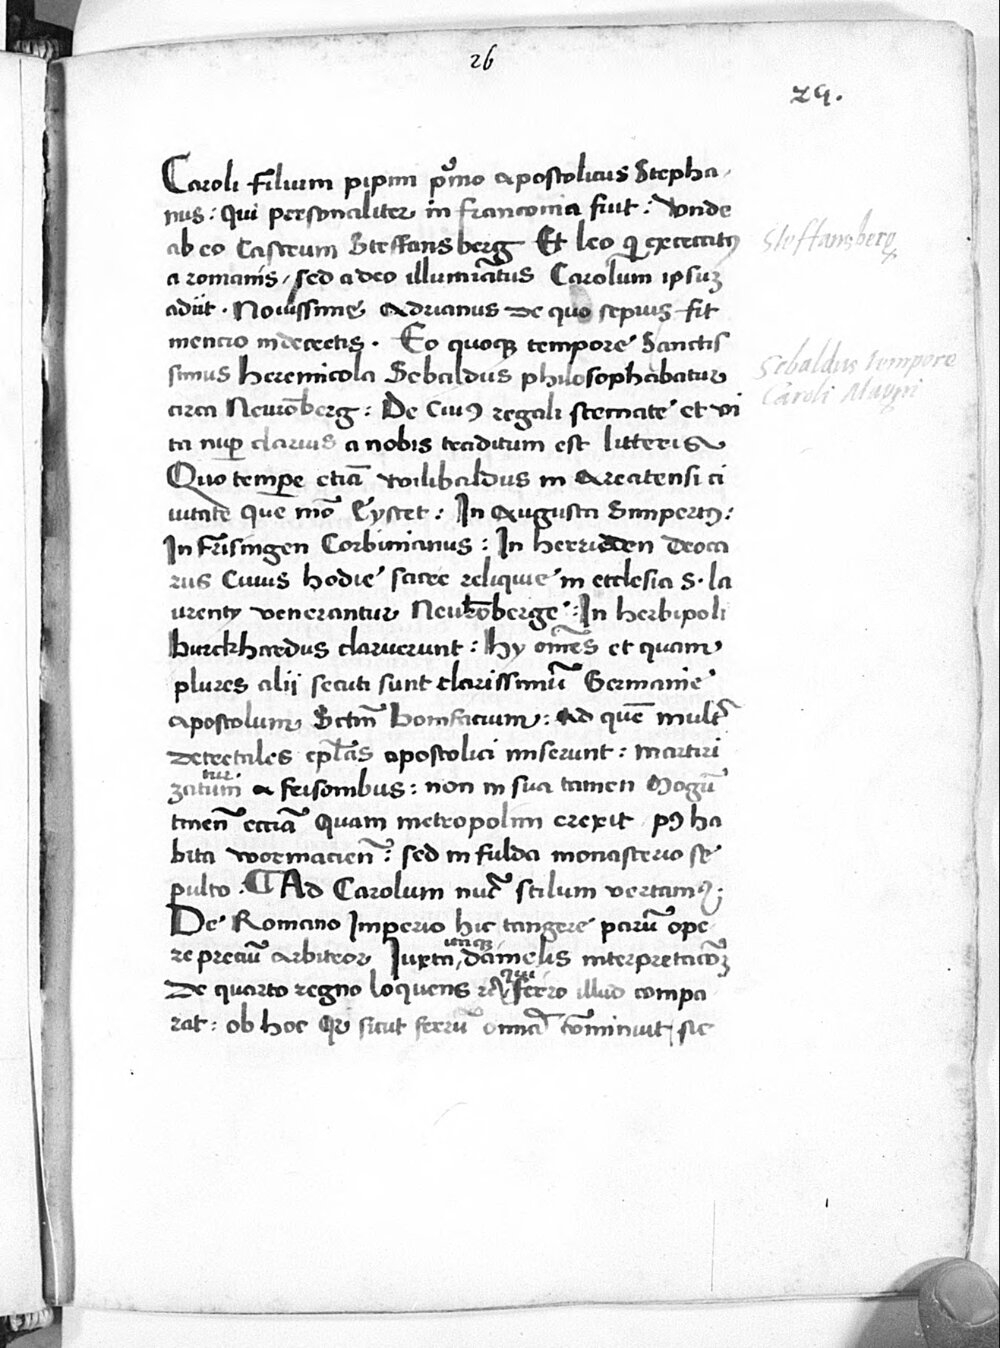 26
29.
Caroli filium pipini pͥmo apostolicus Stepha-
nus: qui personaliter in franconia fuit: Vnde
ab eo Castrum Steffansberg Et leo qͥ excecatꝰ
Steffansberg
a romanis, sed a deo illumiatus Carolum ipsuꝫ
adiit. Nouissime Adrianus de quo sepius fit
mencio in decretis. Eo quoqꝫ tempore Sanctis
Sebaldus tempore
simus heremicola Sebaldus philosophabatur
Caroli Magni
circa Neuroberg: De Cuiꝰ regali stemate et vi
ta nuꝑ clarius a nobis traditum est litteris
Quo tempe etiā wilibaldus in Areatensi ci
uitate que mō Eystet: In Augusta Simpertꝰ:
In Frisingen Corbinianus: In herridden Deoca
rus Cuius hodie sacre reliquie in ecclesia S. la
urenty venerantur Neurōberge: In herbipoli
burckhardus claruerunt: hy om̄es et quam
plures alii secuti sunt clarissimū Germanie
apostolum Sctm̄ Bonifacium: Ad quē mult
decretales ep̄las apostolici miserunt: martiri
tur
zatum a frisonibus: non in sua tamen Mogū
tineñ ecciā Quam metropolim erexit pꝰ ha
bita wormacieñ: sed in fulda monasterio se
pulto. ¶ Ad Carolum nuc stilum vertamꝰ:
De Romano Imperio hic tangere parū ope
re preciū arbitror Iuxta danielis interpretacōꝫ
De quarto regno loquens ferro illud compa
rat: ob hoc Qꝛ sicut ferrū omnia cōminuit sic